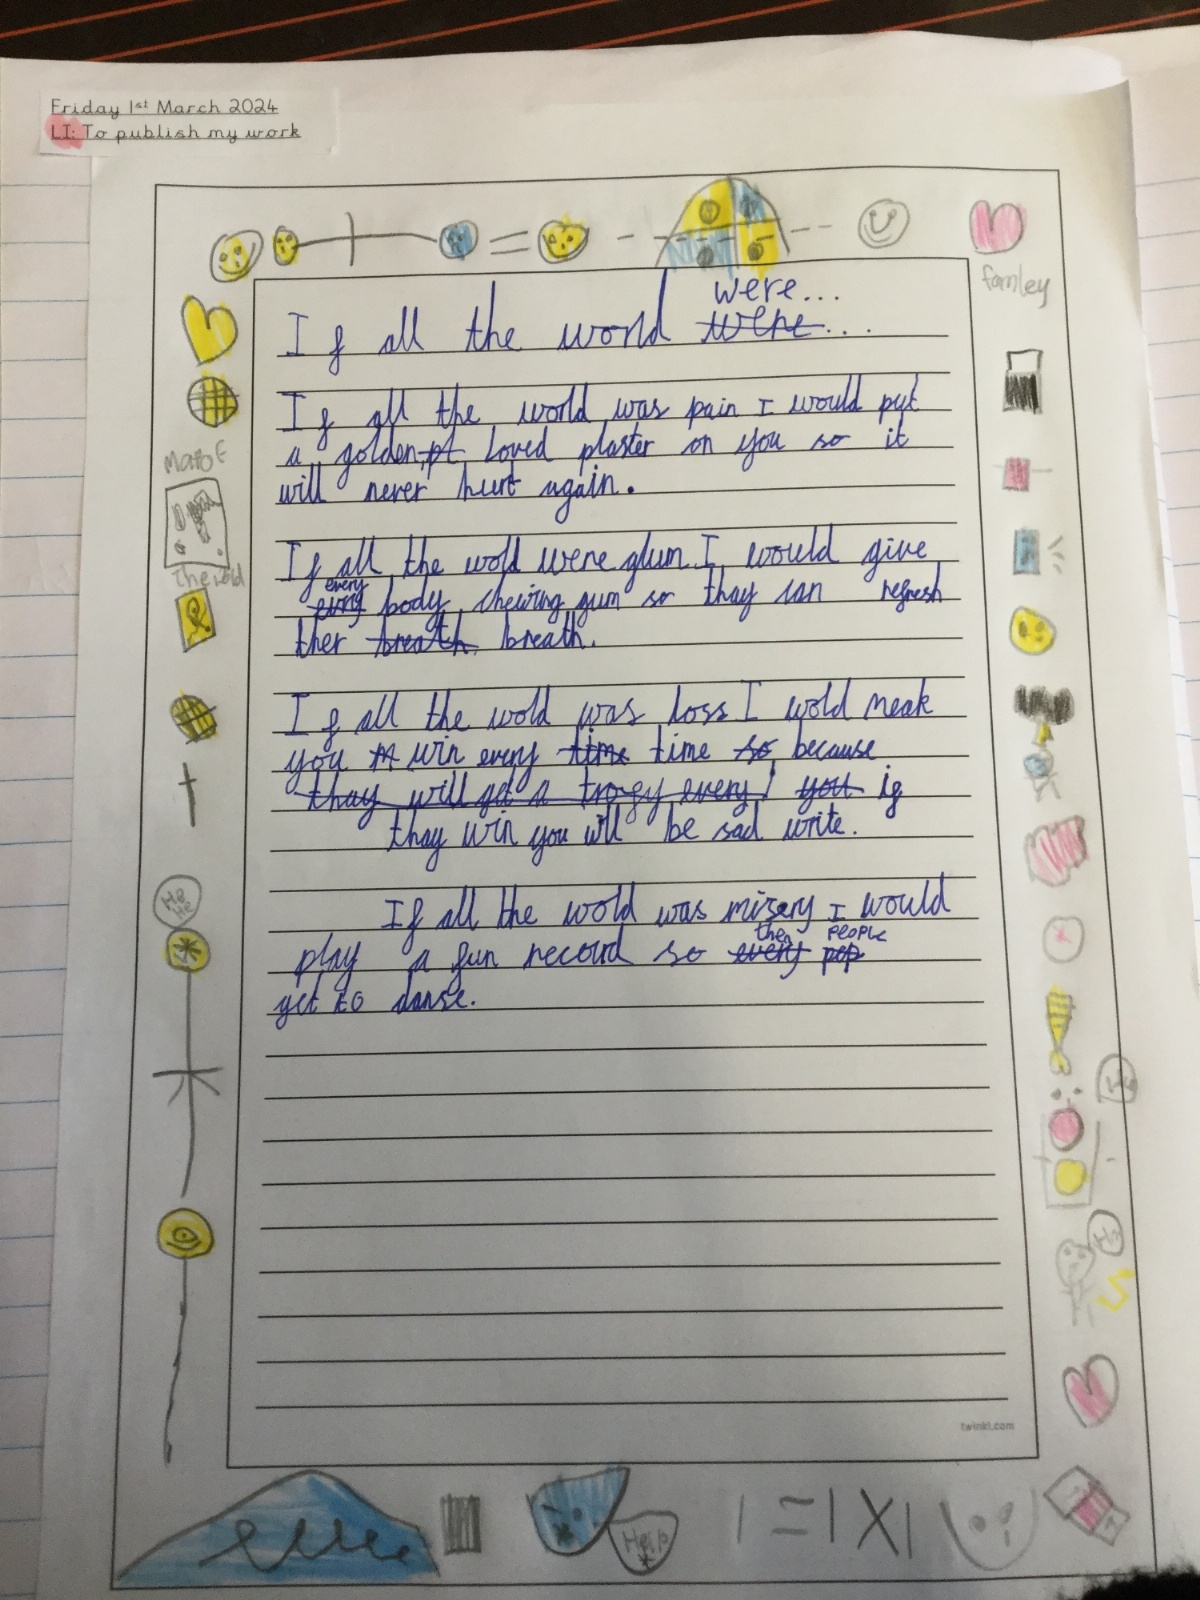 Friday 1st March 2024
LI: To publish my work
famley
were...
If all the world were...
If all the world was pain I would put
a golden, pt loved plaster on you so it
will never hurt again.
If all the wold were glum I would give
every
every body chewing gum so thay can refresh
ther breath breath.
If all the wold was loss I wold meak
you win every time time so because
thay will get a trofy every you if
thay win you will be sad write.
If all the wold was misery I would
then people
play a fun record so every pep
get to danse.
MatoE
the wold
He He
Hello
1=1X1
twinkl.com